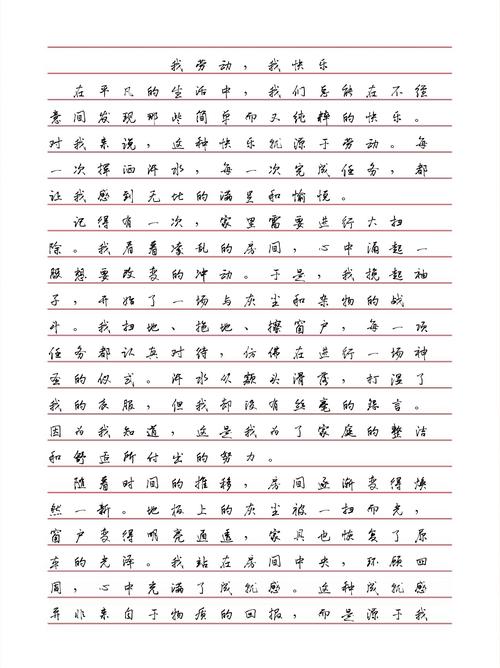 我劳动，我快乐
在平凡的生活中，我们总能在不经
意间发现那些简单而又纯粹的快乐。
对我来说，这种快乐就源于劳动。每
一次挥洒汗水，每一次完成任务，都
让我感到无比的满足和愉悦。
记得有一次，家里需要进行大扫
除。我看着凌乱的房间，心中涌起一
股想要改变的冲动。于是，我挽起袖
子，开始了一场与灰尘和杂物的战
斗。我扫地、拖地、擦窗户，每一项
任务都认真对待，仿佛在进行一场神
圣的仪式。汗水从额头滑落，打湿了
我的衣服，但我却没有丝毫的怨言。
因为我知道，这是我为了家庭的整洁
和舒适所付出的努力。
随着时间的推移，房间逐渐变得焕
然一新。地板上的灰尘被一扫而光，
窗户变得明亮通透，家具也恢复了原
本的光泽。我站在房间中央，环顾四
周，心中充满了成就感。这种成就感
并非来自于物质的回报，而是源于我